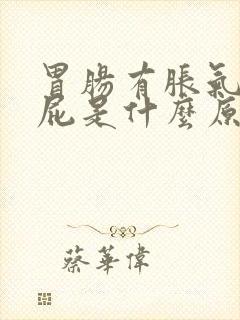 胃腸有脹氣
屁是什麼原
蔡華偉